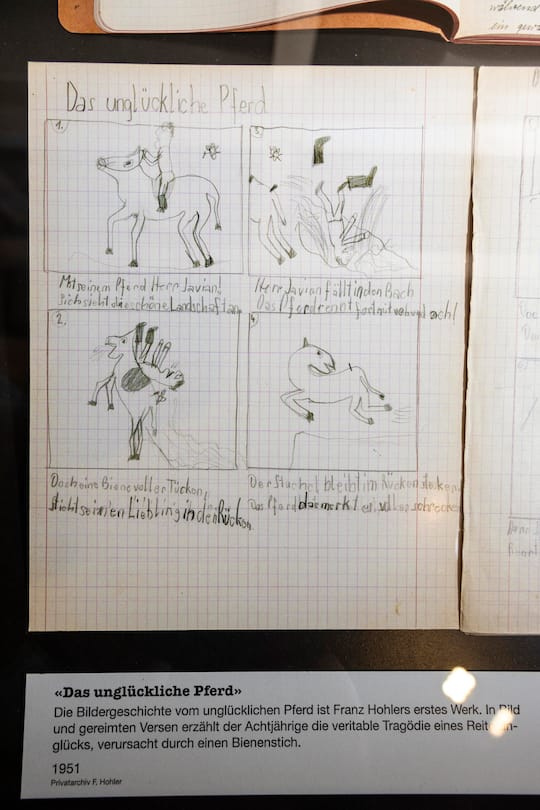 während
ein
Das unglückliche Pferd
1.
Mit seinem Pferd Herr Javian
Sich sieht die schöne Landschaft an
2.
Doch eine Biene voller Tücken,
sticht seinen Liebling in den Rücken
3.
Herr Javian fällt in den Bach
Das Pferd rennt fort mit weh und ach!
4.
Der Stachel bleibt im Rücken stecken
Das Pferd das merkt es voller schrecken
«Das unglückliche Pferd»
Die Bildergeschichte vom unglücklichen Pferd ist Franz Hohlers erstes Werk. In Bild
und gereimten Versen erzählt der Achtjährige die veritable Tragödie eines Reit
glücks, verursacht durch einen Bienenstich.
1951
Privatarchiv F. Hohler